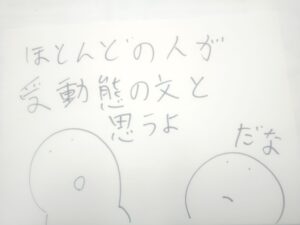 ほとんどの人が
受動態の文と
思うよ
だな